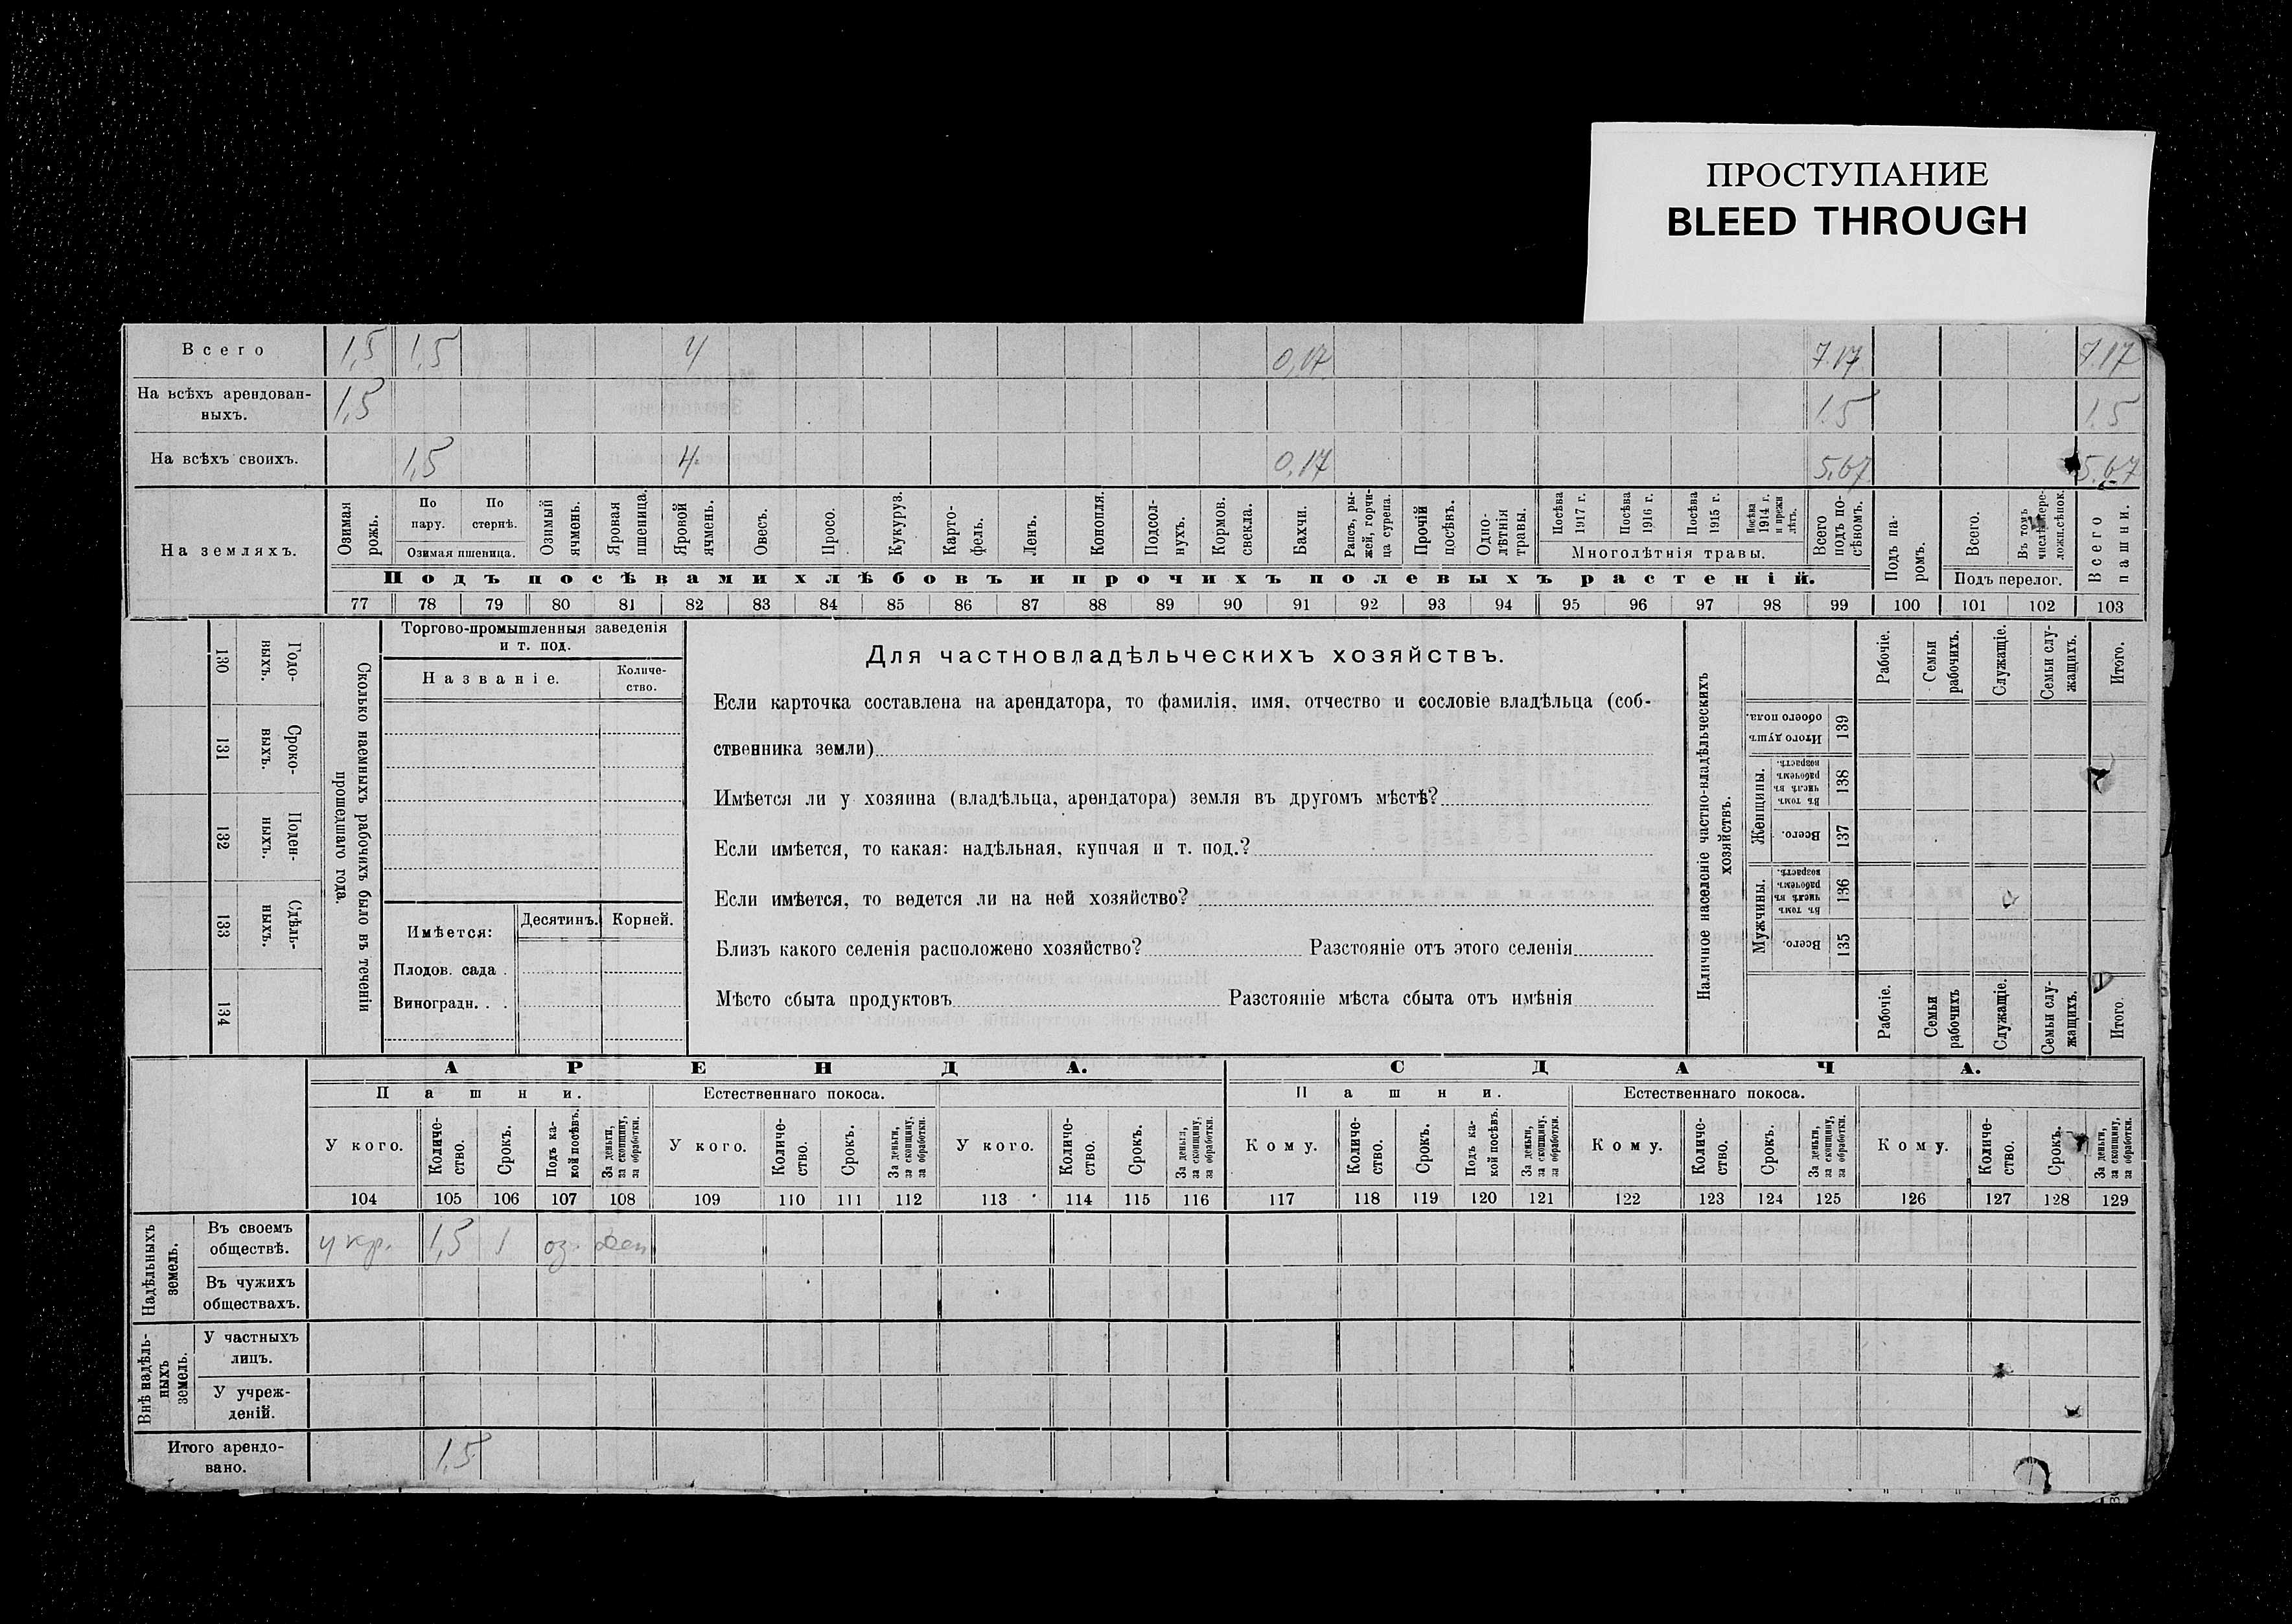 ПРОСТУПАНИЕ
BLEED THROUGH
Всего 1,5 1,5 4 0,17 7.17 7.17
На всѣхъ арендован-
ныхъ. 1,5 1.5 1,5
На всѣхъ своихъ. 1,5 4. 0,17 5.67 5.67
На земляхъ.
Озимая рожь.
По пару.
По стернѣ.
Озимая пшеница.
Озимый ячмень.
Яровая пшеница.
Яровой ячмень.
Овесъ.
Просо.
Кукуруз.
Карто-
фель.
Ленъ.
Конопля.
Подсол-
нухъ.
Кормов. свекла.
Бахчи.
Рапсъ, ры-
жей, горчи-
ца сурепа.
Прочій посѣвъ.
Одно-
лѣтнія травы.
Посѣва 1917 г.
Посѣва 1916 г.
Посѣва 1915 г.
Посѣва 1914 г. и прежн лѣтъ.
Многолѣтнія травы.
Всего подъ по-
сѣвомъ.
Подъ посѣвами хлѣбовъ и прочихъ полевыхъ растеній.
Подъ па-
ромъ.
Всего.
Въ томъ
Подъ перелог.
Всего пашни.
77 78 79 80 81 82 83 84 85 86 87 88 89 90 91 92 93 94 95 96 97 98 99 100 101 102 103
130 Годо-
ныхъ.
131 Сроко-
выхъ.
132 Поден-
ныхъ.
133 Сдѣль-
ныхъ.
134
Сколько наемныхъ рабочихъ было въ теченіи
прошедшаго года.
Торгово-промышленныя заведенія
и т. под.
Названіе.
Количе-
ство.
Имѣется: Десятинъ. Корней.
Плодов. сада .
Виноградн. . .
Для частновладѣльческихъ хозяйствъ.
Если карточка составлена на арендатора, то фамилія, имя, отчество и сословіе владѣльца (соб-
ственника земли)
Имѣется ли у хозяина (владѣльца, арендатора) земля въ другомъ мѣстѣ?
Если имѣется, то какая: надѣльная, купчая и т. под.?
Если имѣется, то ведется ли на ней хозяйство?
Близъ какого селенія расположено хозяйство? Разстояніе отъ этого селенія
Мѣсто сбыта продуктовъ Разстояніе мѣста сбыта отъ имѣнія
Наличное населеніе частно-владѣльческихъ
хозяйствъ.
Рабочіе.
Семьи рабочихъ.
Служащіе.
Семьи слу-
жащихъ.
Итого.
Итого душъ
обоего пола. 139
Женщины.
Въ томъ числѣ въ рабочемъ возрастѣ. 138
Всего. 137
Мужчины.
Въ томъ числѣ въ рабочемъ возрастѣ. 136
Всего. 135
Рабочіе.
Семьи рабочихъ
Служащіе.
Семьи слу-
жащихъ.
Итого.
АРЕНДА. СДАЧА.
Пашни. Естественнаго покоса. Пашни. Естественнаго покоса.
У кого.
Количе-
ство.
Срокъ.
Подъ ка-
кой посѣвъ.
За деньги,
за скопщину,
за обработки.
У кого.
Количе-
ство.
Срокъ.
За деньги,
за скопщину,
за обработки.
У кого.
Количе-
ство.
Срокъ.
За деньги,
за скопщину,
за обработки.
Кому.
Количе-
ство.
Срокъ.
Подъ ка-
кой посѣвъ.
За деньги,
за скопщину,
за обработки.
Кому.
Количе-
ство.
Срокъ.
За деньги,
за скопщину,
за обработки.
Кому.
Количе-
ство.
Срокъ.
За деньги,
за скопщину,
за обработки.
104 105 106 107 108 109 110 111 112 113 114 115 116 117 118 119 120 121 122 123 124 125 126 127 128 129
Надѣльныхъ
земель.
Въ своемъ
обществѣ. у кр. 1,5 1 оз. ден
Въ чужихъ
обществахъ.
Внѣ надѣль-
ныхъ
земель.
У частныхъ
лицъ.
У учреж-
деній.
Итого арендо-
вано. 1,5